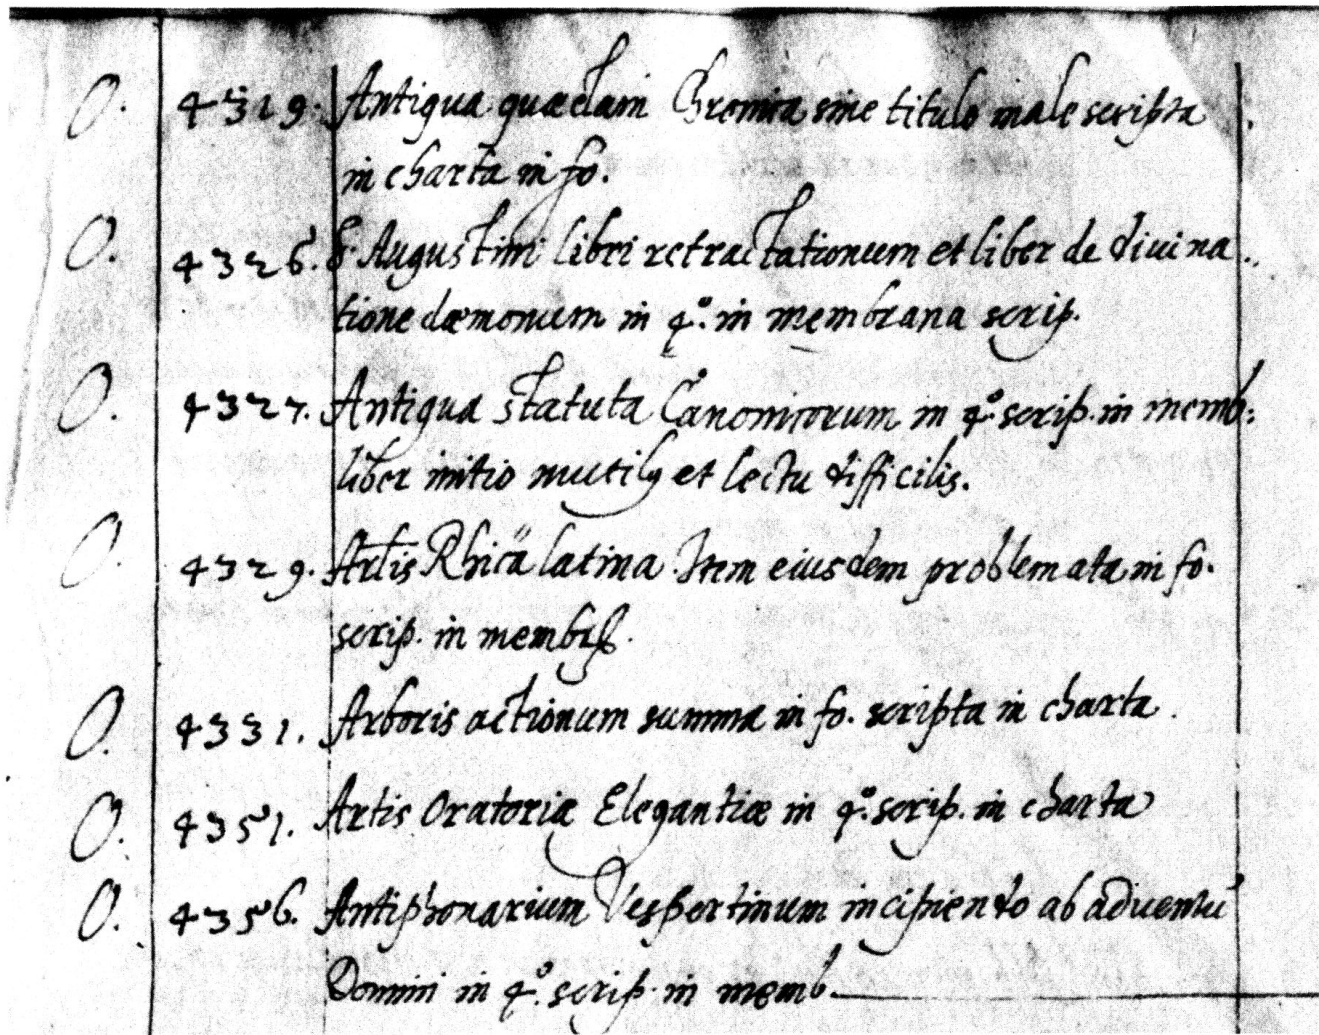 O. 4319. Antiqua quædam Chronica sine titulo male scripta
in charta in fo.
O. 4326. S. Augustini libri retractationum et liber de diuina
tione dæmonum in 4º. in membrana scrip.
O. 4327. Antiqua statuta Canonicorum in 4º. scrip. in memb:
liber initio mutilꝰ et lectu difficilis.
O. 4329. Artis Rhicä latina. Item eiusdem problemata in fo.
scrip. in membr.
O. 4331. Arboris actionum summa in fo. scripta in charta.
O. 4351. Artis Oratoriæ Elegantiæ in 4º. scrip. in charta
O. 4356. Antiphonarium Vespertinum incipiendo ab aduentu
Domini in 4º. scrip. in memb.